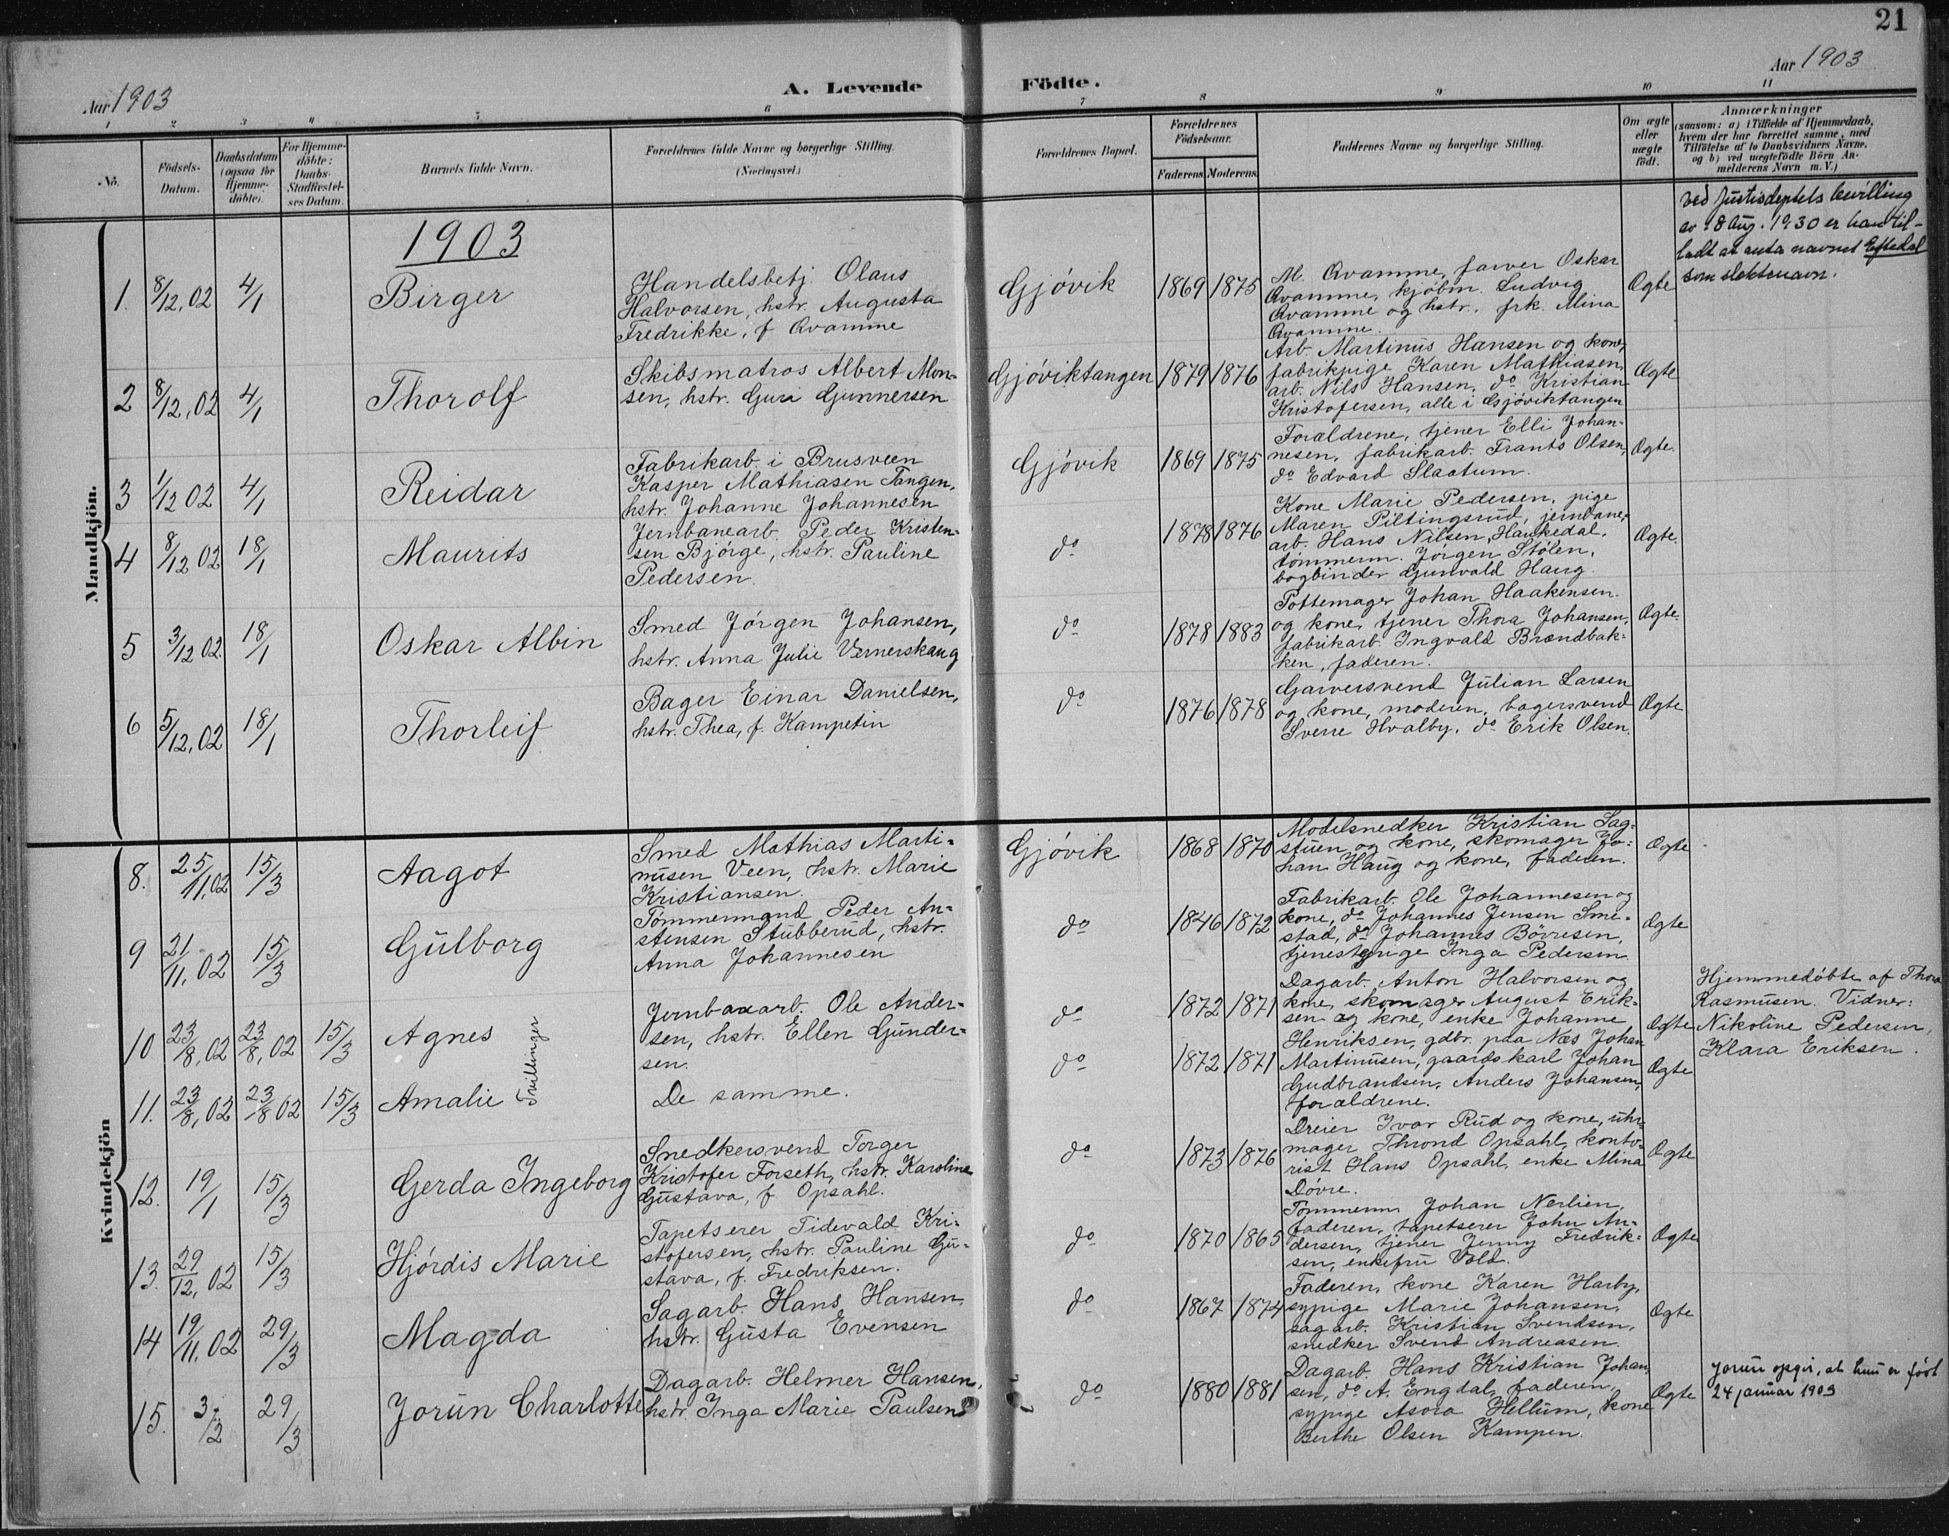 21
Aar 1903
A. Levende Födte.
Aar 1903
1 2 3 4 5 6 7 8 9 10 11
No.
Födsels-
Datum.
Daabsdatum
(ogsaa for
Hjemme-
döbte).
For Hjemme-
döbte:
Daabs-
Stadfæstel-
ses Datum.
Barnets fulde Navn.
Forældrenes fulde Navne og borgerlige Stilling.
(Næringsvei.)
Forældrenes Bopæl.
Forældrenes
Födselsaar.
Faderens. Moderens.
Faddernes Navne og borgerlige Stilling.
Om ægte
eller
uægte
födt.
Anmærkninger
(saasom: a) i Tilfælde af Hjemmedaab,
hvem der har forrettet samme, med
Tilföielse af to Daabsvidners Navne.
og b) ved uægtefödte Börn An-
melderens Navn m. V.)
Mandkjön.
1903
1. 8/12, 02 4/1
Birger
Handelsbetj. Olaus
Halvorsen, hstr. Augusta
Fredrikke, f. Qvamme
Gjøvik
1869 1875
M. Qvamme, farver Oskar
Qvamme, kjøbm. Ludvig
Qvamme og hstr., frk. Mina
Qvamme.
Ægte
ved Justisdeptets bevilling
av 18 Aug. 1930 er han til-
ladt at anta navnet Eftedal
som slektsnavn.
2 8/12, 02 4/1
Thorolf
Skibsmatros Albert Mon-
sen, hstr. Guri Gunnersen
Gjøviktangen
1879 1876
Arb. Martinus Hansen og kone,
fabrikpige Karen Mathiasen,
arb. Nils Hansen, do Kristian
Kristofersen, alle i Gjøviktangen
Ægte
3 1/12 02 4/1
Reidar
Fabrikarb. i Brusveen
Kasper Mathiasen Tangen,
hstr. Johanne Johannesen
Gjøvik
1869 1875
Forældrene, tjener Elli Johan-
nesen, fabrikarb. Frants Olsen,
do Edvard Slaatum.
Ægte.
4 8/12 02 18/1
Maurits
Jernbanearb. Peder Kristen-
sen Bjørge, hstr. Pauline
Pedersen.
do
1878 1876
Kone Marie Pedersen, pige
Maren Piltingsrud, jernbane-
arb. Hans Nilsen Haukedal,
tømmerm. Jørgen Stølen,
bogbinder Gunvald Haug.
Ægte.
5 3/12 02. 18/1
Oskar Albin
Smed Jørgen Johansen,
hstr. Anna Julie Vernerskaug
do
1878 1883
Pottemager Johan Haakensen
og kone, tjener Thora Johansen,
fabrikarb. Ingvald Brændbak-
ken, faderen.
Ægte.
6 5/12, 02 18/1
Thorleif
Bager Einar Danielsen,
hstr. Thea, f. Kampetin
do
1876 1878
Garversvend Julian Larsen
og kone, moderen, bagersvend
Sverre Hvalby, do Erik Olsen.
Ægte
Kvindekjön
8. 25/11, 02 15/3
Aagot
Smed Mathias Marti-
nusen Veen, hstr. Marie
Kristiansen.
Gjøvik
1868 1870
Modelsnedker Kristian Sag-
stuen og kone, skomager Jo-
han Haug og kone, faderen.
Ægte
9 21/11, 02 15/3
Gulborg
Tømmermand Peder An-
stensen Stubberud, hstr.
Anna Johannesen
do
1846 1872
Fabrikarb. Ole Johannesen og
kone, do Johannes Jensen Sme-
stad, do Johannes Bøvresen,
tjenestpige Inga Pedersen
Ægte
10 23/8, 02 23/8, 02 15/3
Agnes
Tvillinger
Jernbanarb. Ole Ander-
sen, hstr. Ellen Gunder-
sen.
do
1872 1871
Dagarb. Anton Halvorsen og
kone, skomager August Erik-
sen og kone, enke Johanne
Henriksen, gdbr. paa Næs Johan
Ægte
Hjemmedøbte af Thora
Rasmusen. Vidner:
Nikoline Pedersen,
Klara Eriksen.
11. 23/8, 02 23/8 02 15/3
Amalie
De samme.
do
1872 1871
Martinusen, gaardskarl Johan
Gudbrandsen, Anders Johansen,
forældrene.
Ægte
12. 19/1 15/3
Gerda Ingeborg
Snedkersvend Torger
Kristofer Forseth, hstr. Karoline
Gustava, f. Opsahl.
do
1873 1876
Dreier Ivar Rud og kone, uhr-
mager Thrond Opsahl, konto-
rist Hans Opsahl, enke Mina
Dovre.
Ægte
13. 29/12, 02 15/3
Hjørdis Marie
Tapetserer Tidevald Kri-
stofersen, hstr. Pauline Gu-
stava, f. Fredriksen.
do
1870 1865
Tømmerm. Johan Nerlien,
faderen, tapetserer John An-
dersen, tjener Jenny Fredrik-
sen, enkefru Vold.
Ægte
14 19/11, 02 29/3
Magda
Sagarb. Hans Hansen,
hstr. Gusta Evensen
do
1867 1874
Faderen, kone Karen Harby,
sypige Marie Johansen,
sagarb. Kristian Svendsen,
snedker Svend Andreasen.
Ægte
15. 3/2 29/3
Jorun Charlotte
Dagarb. Helmer Hansen,
hstr. Inga Marie Paulsen
do
1880 1881
Dagarb. Hans Kristian Johan-
sen, do A. Engdal, faderen,
sypige Asora Hellum, kone
Berthe Olsen Kampen.
Ægte
Jorun opgir, at hun er født
24 januar 1903